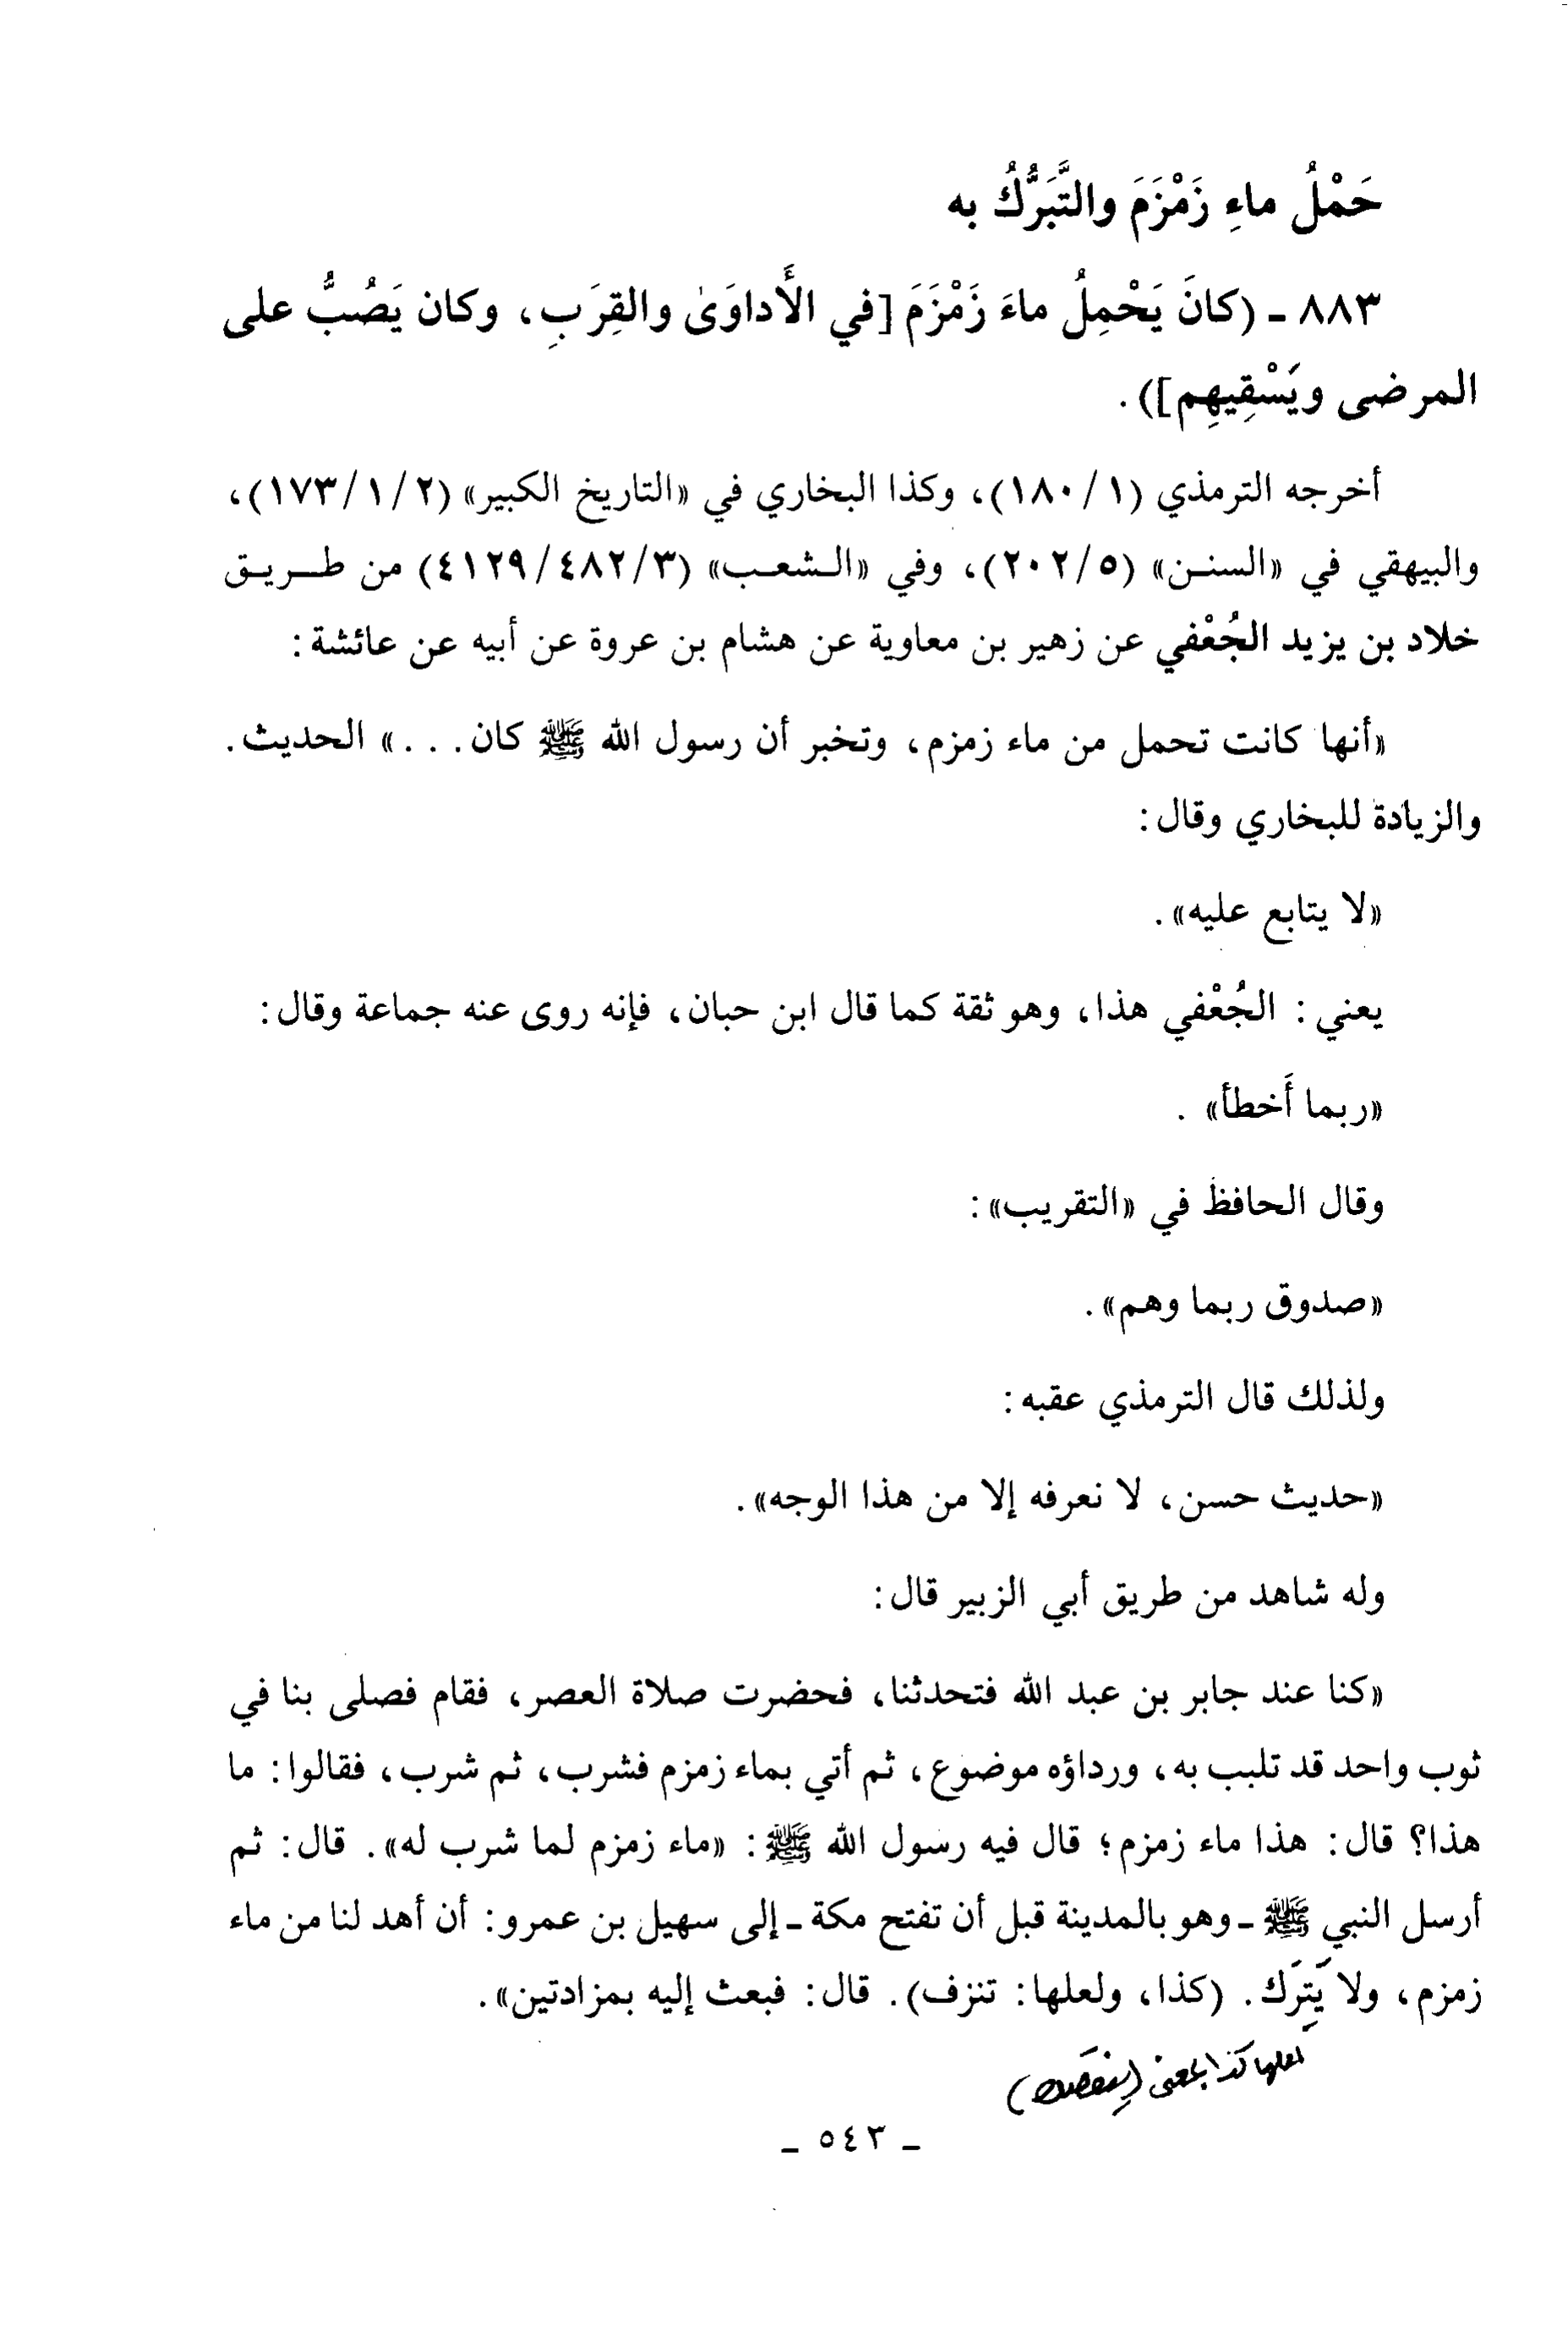 حَمْلُ ماءِ زَمْزَمَ والتَّبَرُّكُ به
٨٨٣ ـ (كانَ يَحْمِلُ ماءَ زَمْزَمَ [في الأَداوَىٰ والقِرَبِ، وكان يَصُبُّ على
المرضى ويَسْقِيهِم]).
أخرجه الترمذي (١/ ١٨٠)، وكذا البخاري في «التاريخ الكبير» (٢/ ١/ ١٧٣)،
والبيهقي في «السنن» (٥/ ٢٠٢)، وفي «الشعب» (٣/ ٤٨٢/ ٤١٢٩) من طريق
خلاد بن يزيد الجُعْفي عن زهير بن معاوية عن هشام بن عروة عن أبيه عن عائشة:
«أنها كانت تحمل من ماء زمزم، وتخبر أن رسول الله ﷺ كان...» الحديث.
والزيادة للبخاري وقال:
«لا يتابع عليه».
يعني: الجُعْفي هذا، وهو ثقة كما قال ابن حبان، فإنه روى عنه جماعة وقال:
«ربما أَخطأ» .
وقال الحافظ في «التقريب»:
«صدوق ربما وهم».
ولذلك قال الترمذي عقبه:
«حديث حسن، لا نعرفه إلا من هذا الوجه».
وله شاهد من طريق أبي الزبير قال:
«كنا عند جابر بن عبد الله فتحدثنا، فحضرت صلاة العصر، فقام فصلى بنا في
ثوب واحد قد تلبب به، ورداؤه موضوع، ثم أتي بماء زمزم فشرب، ثم شرب، فقالوا: ما
هذا؟ قال: هذا ماء زمزم؛ قال فيه رسول الله ﷺ: «ماء زمزم لما شرب له». قال: ثم
أرسل النبي ﷺ ـ وهو بالمدينة قبل أن تفتح مكة ـ إلى سهيل بن عمرو: أن أهد لنا من ماء
زمزم، ولا يَتِرَك. (كذا، ولعلها: تنزف). قال: فبعث إليه بمزادتين».
لعلها كذا بمعنى
ـ ٥٤٣ ـ